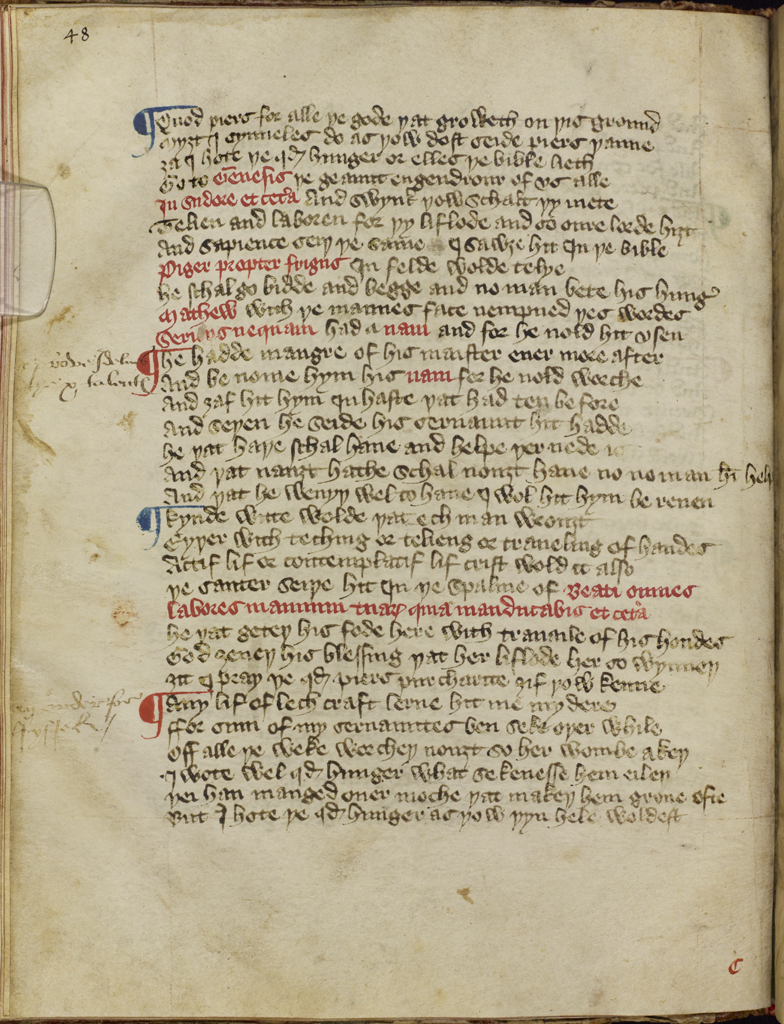 48
Quod piers for alle þe gode þat groweth on þis ground
Myȝt I synneles do as þow dost seide piers þanne
ȝa I hote þe qd hunger or elles þe bible lieth
Go to Genesis þe geaunt engendrour of vs alle
In sudore et cetera And swynk þow schalt þy mete
Telien and laboren for þy liflode and so oure lorde hiȝt
And Sapience seiþ þe same I sawȝe hit In þe bible
Piger propter frigus In felde wolde telye
he schal go bidde and begge and no man bete his hunger
Mathew with þe mannes face nempned þes wordes
Seruus nequam had a nam and for he nold hit vsen
He hadde maugre of his maister euer more after
And be nome hym his nam for he nold worche
And ȝaf hit hym In haste þat had ten be fore
And seþen he seide his seruaunt hit hadde
he þat haþe schal haue and helpe þer nede is
And þat nauȝt hathe Schal nouȝt haue no no man hī help
And þat he wenyþ wel to haue I wol hit hym be reuen
kynde witte wolde þat ech man wrouȝt
Eyþer with teching or telieng or traueling of handes
Actif lif or contemplatif lif crist wold it also
þe sauter seiþe hit In þe spalme of Beati omnes
Labores manuum tuarum quia manducabis et cetera
he þat geteþ his fode here with trauaile of his hondes
God ȝeueþ his blessing þat her liflode her so wynneþ
ȝit I pray þe qd piers pur charite ȝif þow kenne
Any lif of lech craft lerne hit me my dere
ffor sum of my seruauntes ben seke oþer while
Off alle þe weke worcheþ nouȝt so her wombe akeþ
I wote wel qd hunger what sekenesse hem eileþ
þei han manged ouer moche þat makeþ hem grone ofte
But I hote þe qd hunger as þow þyn hele woldest
C